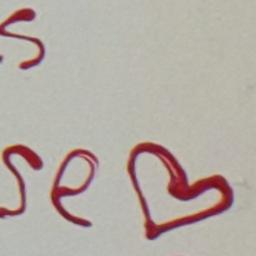 s
se ♡